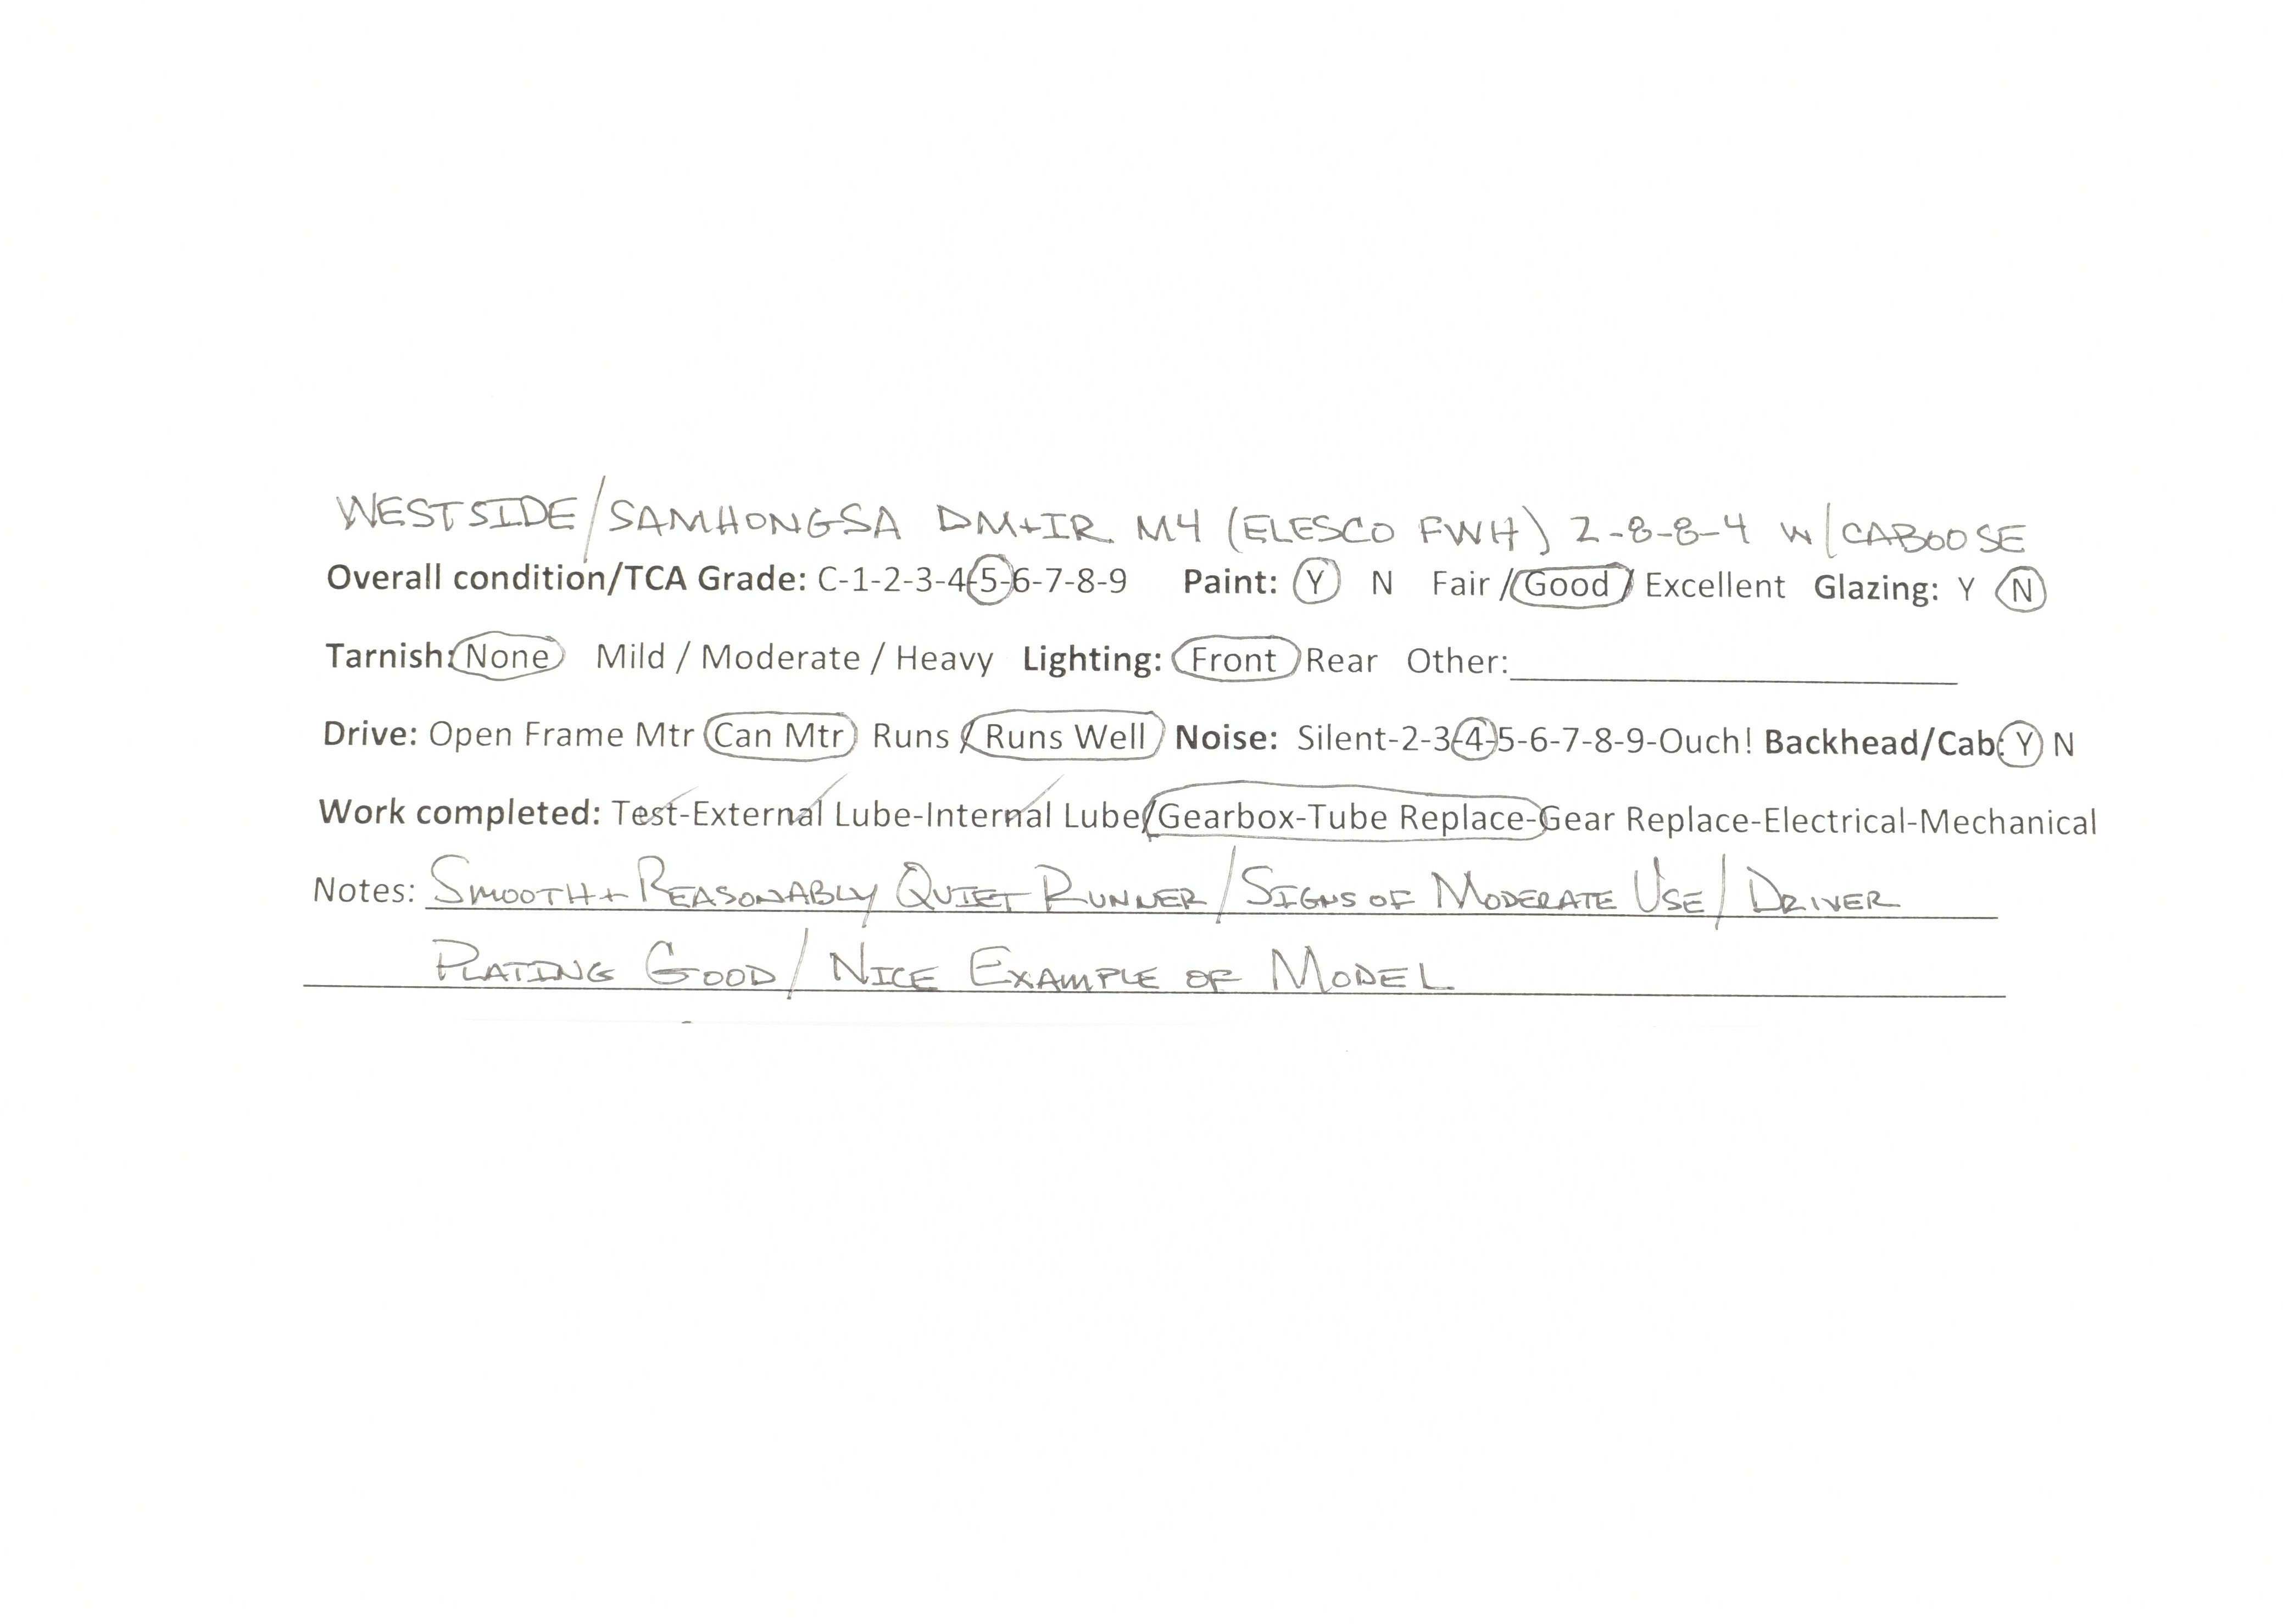 WESTSIDE/SAMHONGSA DM+IR M4 (ELESCO FWH) 2-8-8-4 W/CABOOSE
Overall condition/TCA Grade: C-1-2-3-4-5-6-7-8-9 Paint: Y N Fair / Good / Excellent Glazing: Y N
Tarnish: None Mild / Moderate / Heavy Lighting: Front Rear Other:
Drive: Open Frame Mtr Can Mtr Runs / Runs Well Noise: Silent-2-3-4-5-6-7-8-9-Ouch! Backhead/Cab: Y N
Work completed: Test-External Lube-Internal Lube/Gearbox-Tube Replace-Gear Replace-Electrical-Mechanical
Notes: SMOOTH + REASONABLY QUIET RUNNER / SIGNS OF MODERATE USE / DRIVER
PLATING GOOD / NICE EXAMPLE OF MODEL